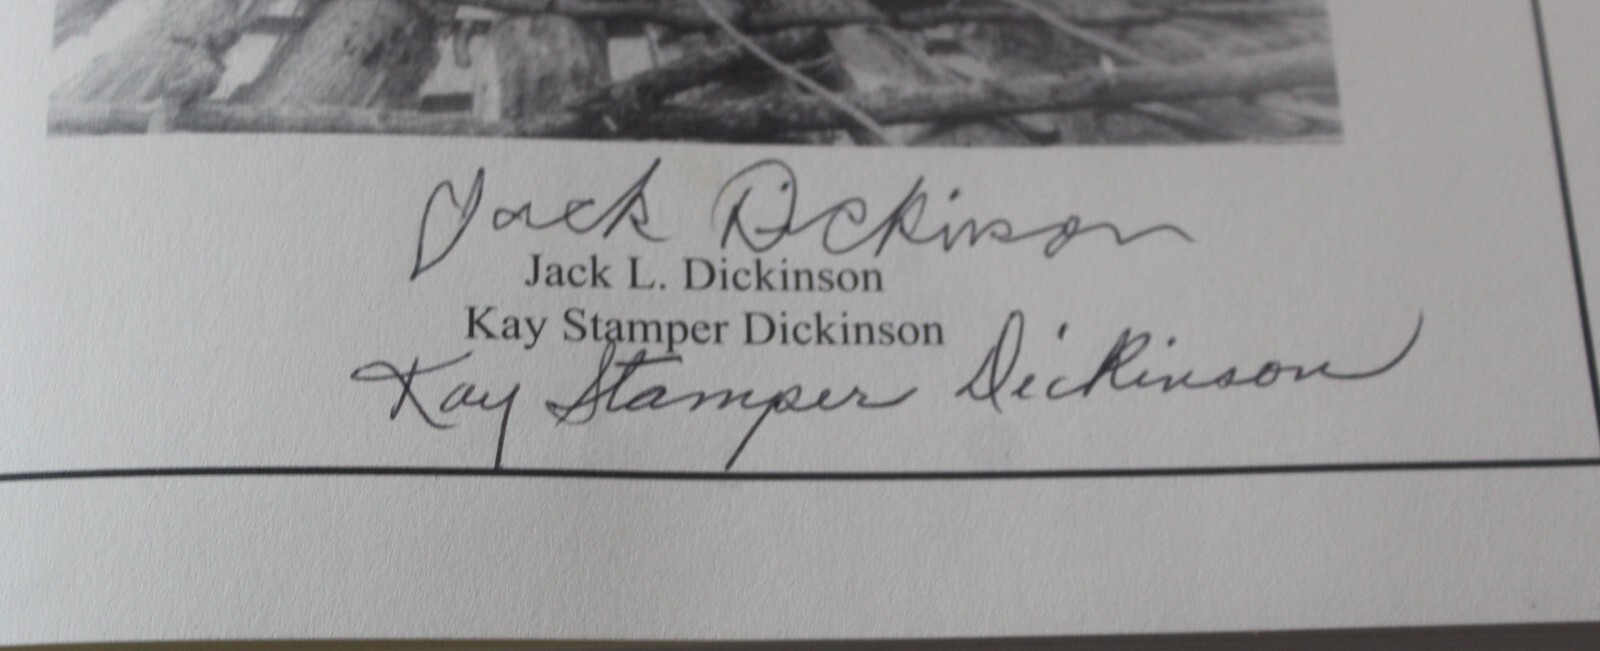 Jack Dickinson
Jack L. Dickinson
Kay Stamper Dickinson
Kay Stamper Dickinson